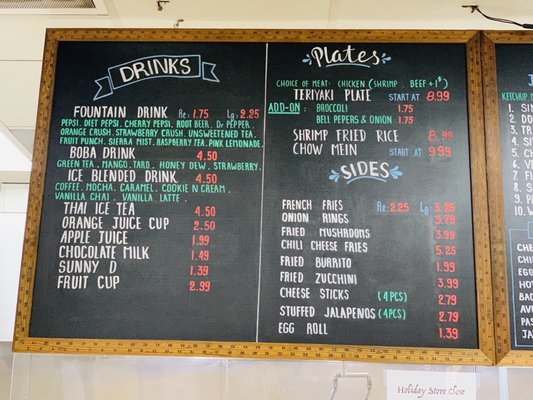 DRINKS
FOUNTAIN DRINK Re: 1.75 Lg: 2.25
PEPSI. DIET PEPSI. CHERRY PEPSI. ROOT BEER. Dr PEPPER.
ORANGE CRUSH. STRAWBERRY CRUSH. UNSWEETENED TEA.
FRUIT PUNCH. SIERRA MIST. RASPBERRY TEA. PINK LEMONADE.
BOBA DRINK 4.50
GREEN TEA. MANGO. TARO. HONEY DEW. STRAWBERRY.
ICE BLENDED DRINK 4.50
COFFEE. MOCHA. CARAMEL. COOKIE N CREAM.
VANILLA CHAI. VANILLA LATTE.
THAI ICE TEA 4.50
ORANGE JUICE CUP 2.50
APPLE JUICE 1.99
CHOCOLATE MILK 1.49
SUNNY D 1.39
FRUIT CUP 2.99
PLATES
CHOICE OF MEAT: CHICKEN (SHRIMP. BEEF +1$)
TERIYAKI PLATE START AT 8.99
ADD-ON: BROCCOLI 1.75
BELL PEPERS & ONION 1.75
SHRIMP FRIED RICE 8.99
CHOW MEIN START AT 9.99
SIDES
FRENCH FRIES Re: 2.25 Lg: 3.25
ONION RINGS 3.79
FRIED MUSHROOMS 3.99
CHILI CHEESE FRIES 5.25
FRIED BURRITO 1.99
FRIED ZUCCHINI 3.99
CHEESE STICKS (4PCS) 2.79
STUFFED JALAPENOS (4PCS) 2.79
EGG ROLL 1.39
KETCHUP,
Holiday Store Close